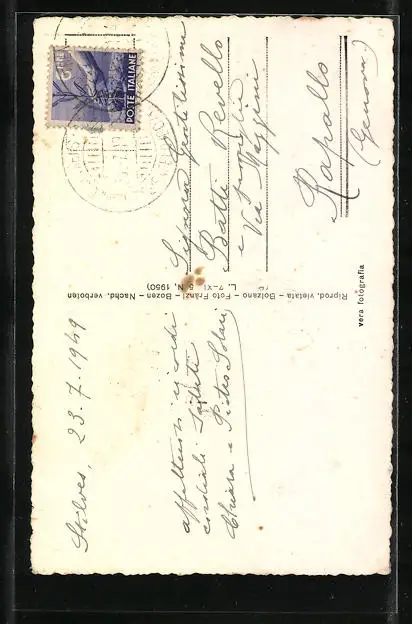 Stilves, 23.7.1949
affettuosi e cordi
cordiali saluti
Chiara e Pietro Solari
Riprod. vietata – Bolzano – Foto Fränzl – Bozen – Nachd. verboten
L. 7-XI 5 N. 1950)
vera fotografia
6 LIRE
POSTE ITALIANE
Signora Gentilissima
Batti Revello
e famiglia
Via Mazzini
Rapallo
(Genova)